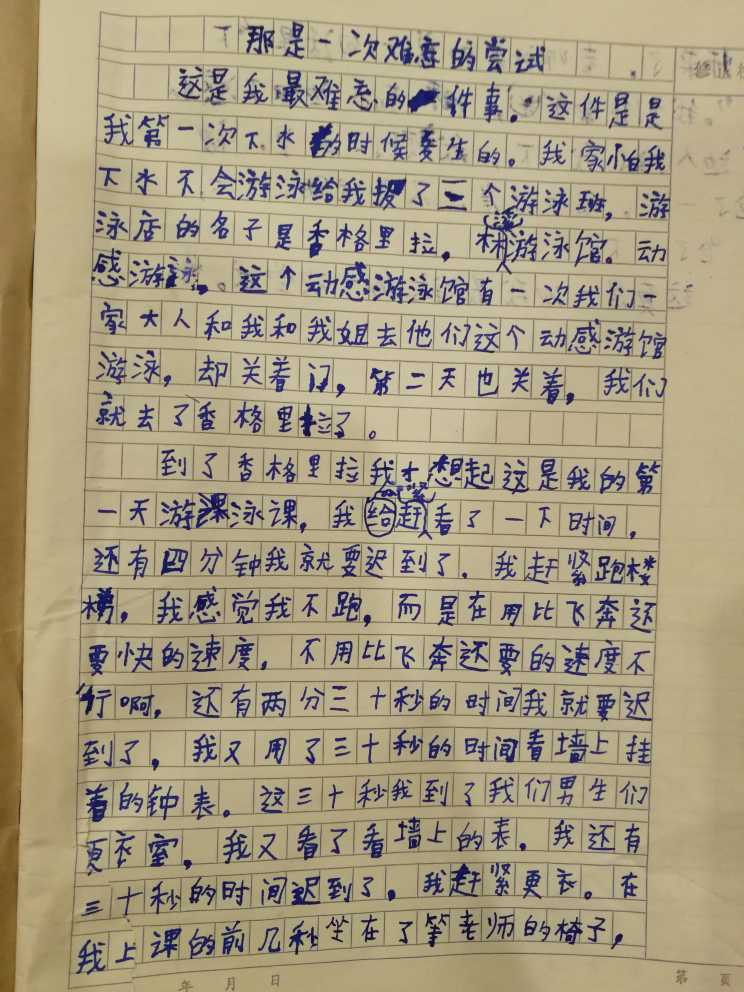 那是一次难忘的尝试
这是我最难忘的件事。这件是是
我第一次下水的时候要生的。我家怕我
下水不会游泳给我报了三个游泳班，游
泳店的名子是香格里拉，游泳馆。动
感游泳。这个动感游泳馆有一次我们一
家大人和我和我姐去他们这个动感游馆
游泳，却关着门，第二天也关着，我们
就去了香格里拉了。
到了香格里拉我才想起这是我的第
一天游泳课，我给赶紧看了一下时间，
还有四分钟我就要迟到了。我赶紧跑楼
梯，我感觉我不跑，而是在用比飞奔还
要快的速度，不用比飞奔还要的速度不
行啊，还有两分三十秒的时间我就要迟
到了，我又用了三十秒的时间看墙上挂
着的钟表。这三十秒我到了我们男生们
更衣室，我又看了看墙上的表。我还有
三十秒的时间迟到了，我赶紧更衣。在
我上课的前几秒坐在了等老师的椅子，
年 月 日
第 页